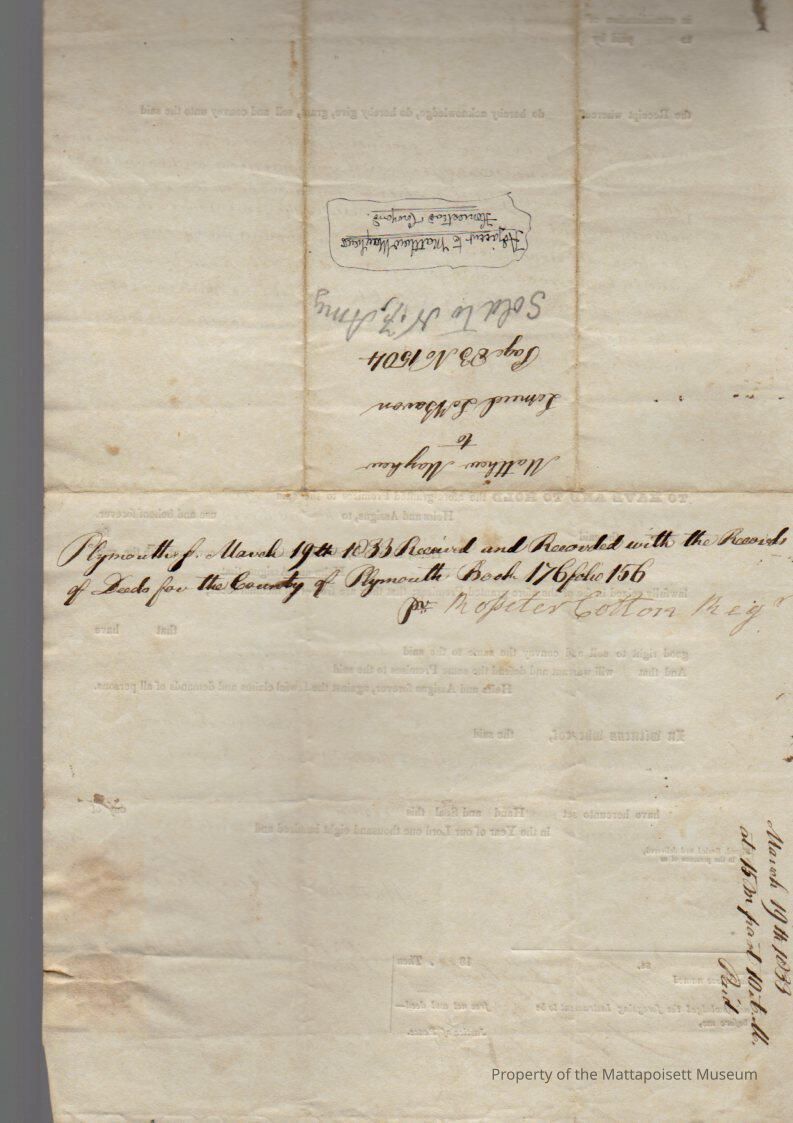 Matthew Mayhew
to
Lemuel LeBaron
Page 83 No 1504
Sold to N. F. Amy
Adjacent to Matthew Mayhews
Homestead
Plymouth ss. March 19th 1833 Received and Recorded with the Records
of Deeds for the County of Plymouth Book 176 folio 156
pr Rosseter Cotton Regr
March 19th 1833
at 15m past 10
Paid
the Receipt whereof do hereby acknowledge, do hereby give, grant, sell and convey unto the said
TO HAVE AND TO HOLD the afore-granted Premises to the said
Heirs and Assigns, to use and behoof forever.
that have
good right to sell and convey the same to the said
And that will warrant and defend the same Premises to the said
Heirs and Assigns forever, against the lawful claims and demands of all persons.
In Witness Whereof, the said
have hereunto set Hand and Seal this day of
in the Year of our Lord one thousand eight hundred and
ss. 18 , Then
free act and deed—
Justice of Peace.
Property of the Mattapoisett Museum